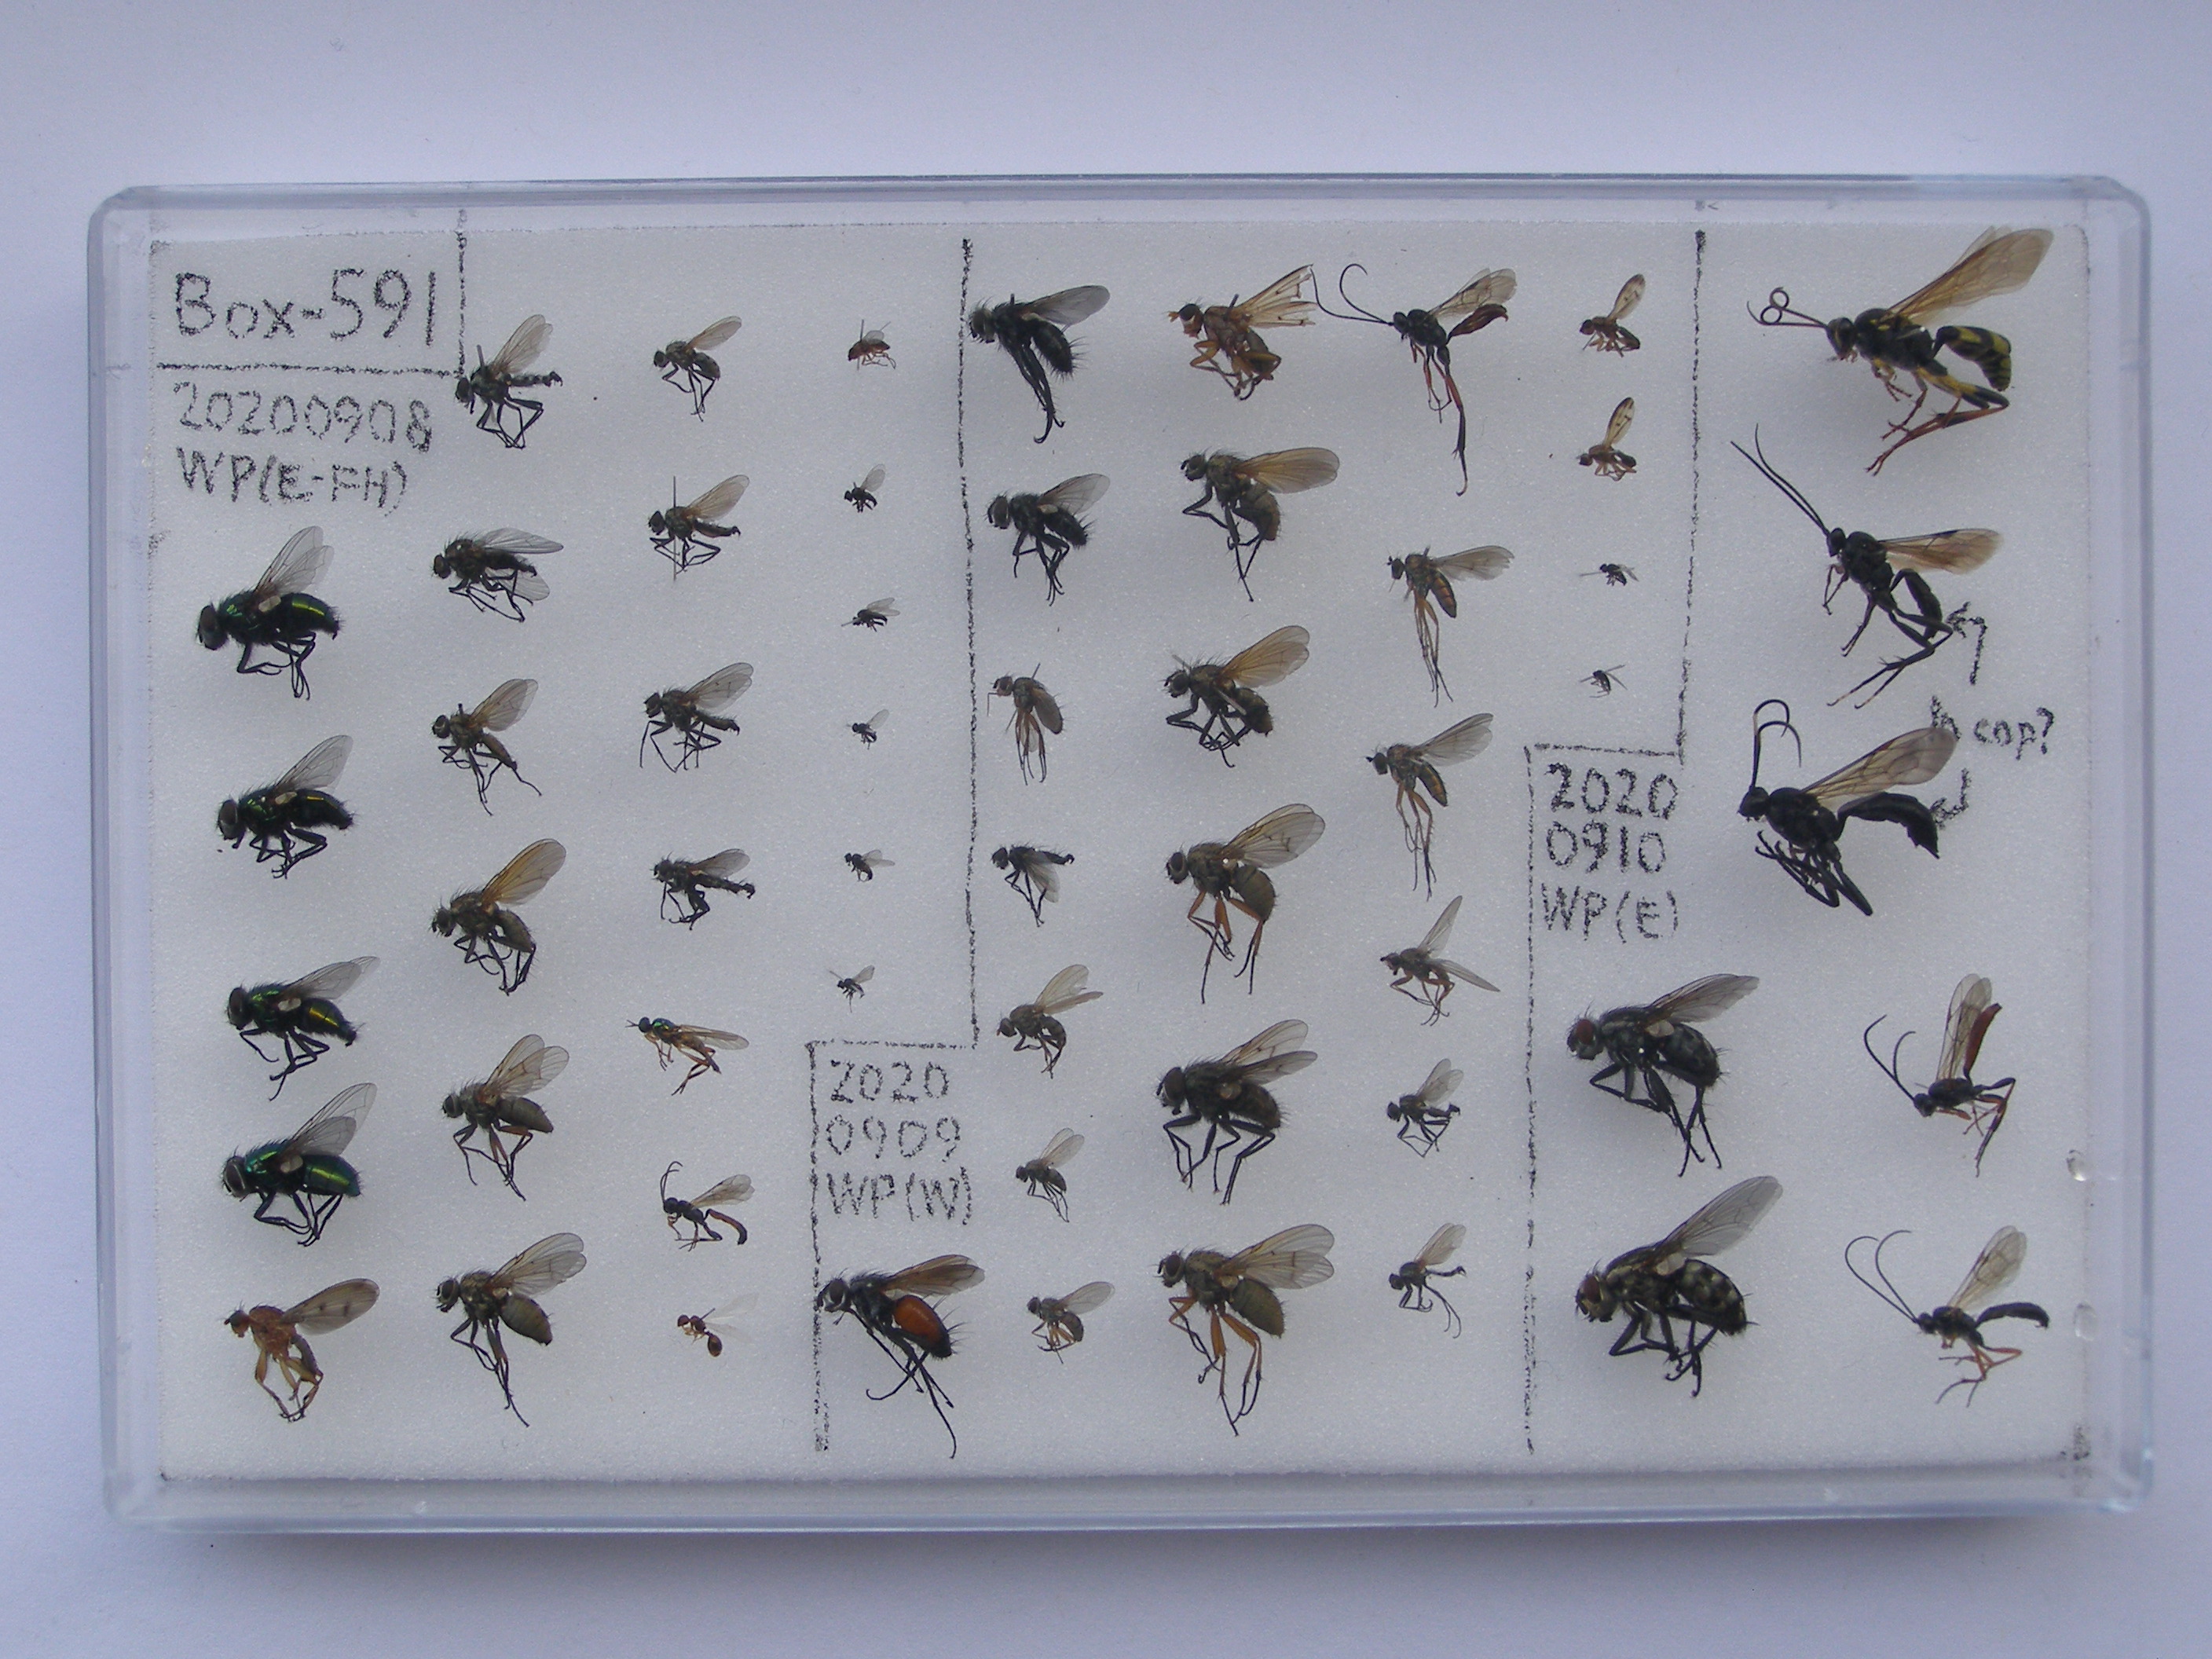 Box-591
20200908
WP(E-FH)
2020
0909
WP(W)
2020
0910
WP(E)
in cop?